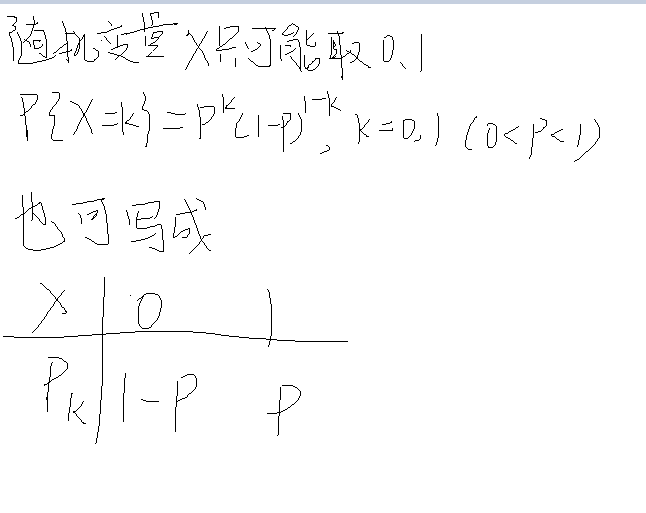 随机变量X只可能取0、1
P{X=k}=P^k(1-P)^{1-k}, k=0,1 (0<P<1)
也可写成
X 0 1
P_k 1-P P